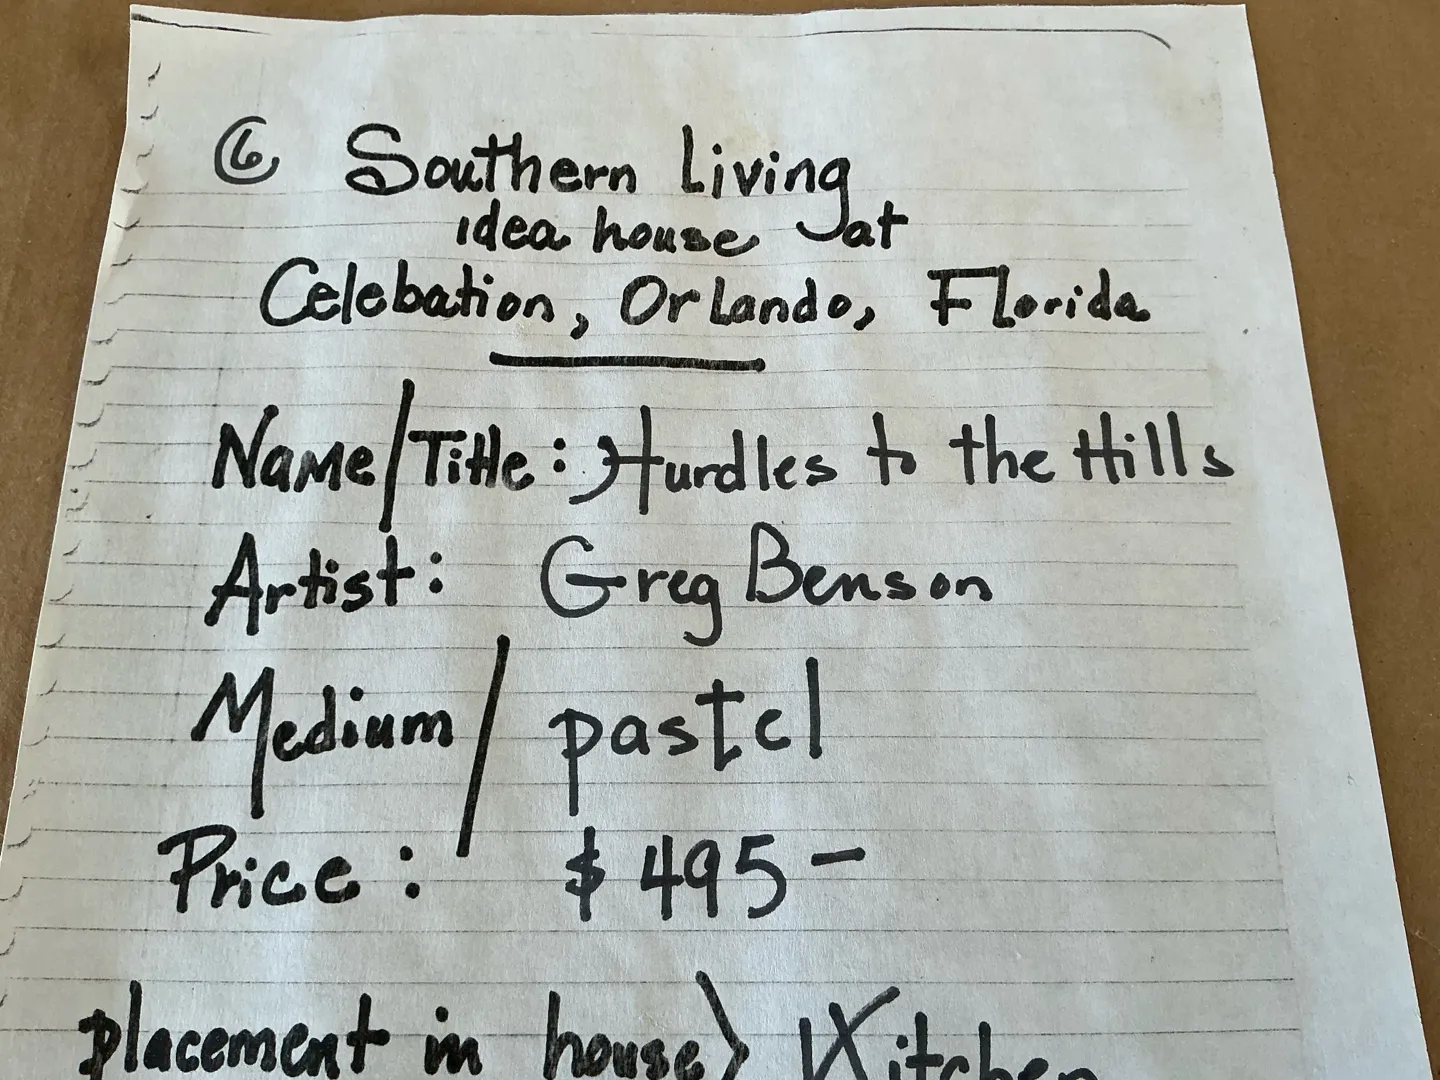 6 Southern Living
idea house at
Celebation, Orlando, Florida
Name/Title: Hurdles to the Hills
Artist: Greg Benson
Medium/ pastel
Price: $495-
placement in house) Kitchen